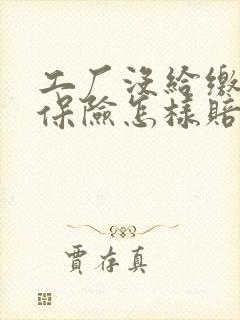 工厂没给缴
保险怎样赔
贾存真